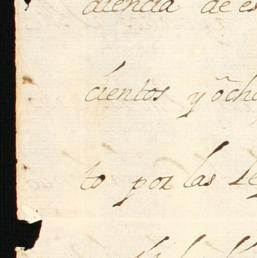 diencia de es
cientos y õcho
to por las Le